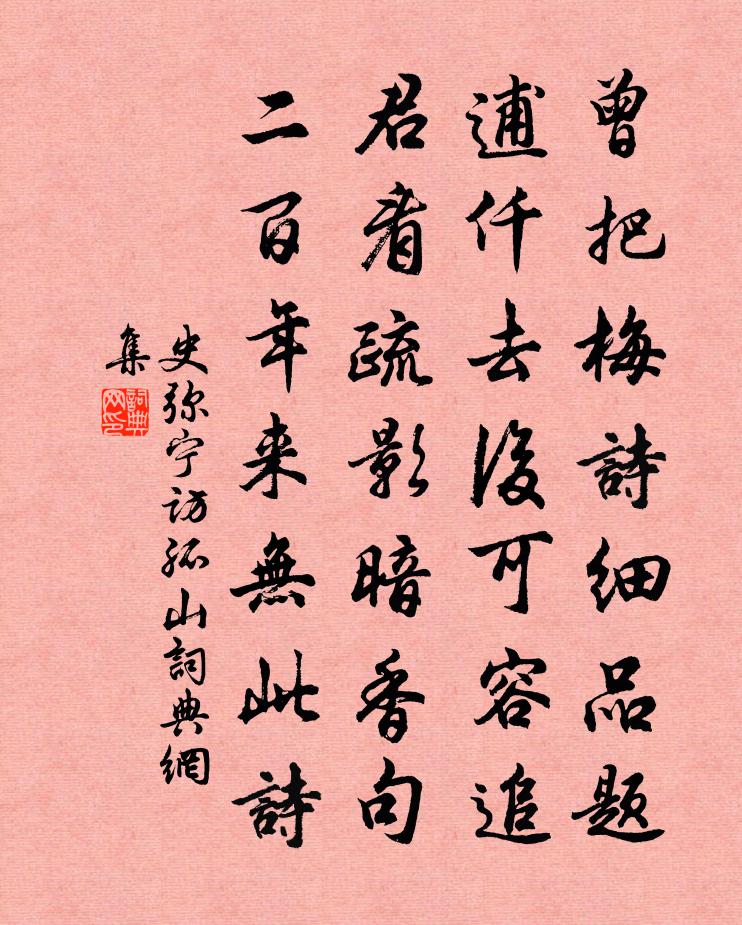 曾把梅詩細品題
逋仟去後可容追
君看疏影暗香句
二百年来無此詩
史弥宁访孤山詞典網
集
詞典网印